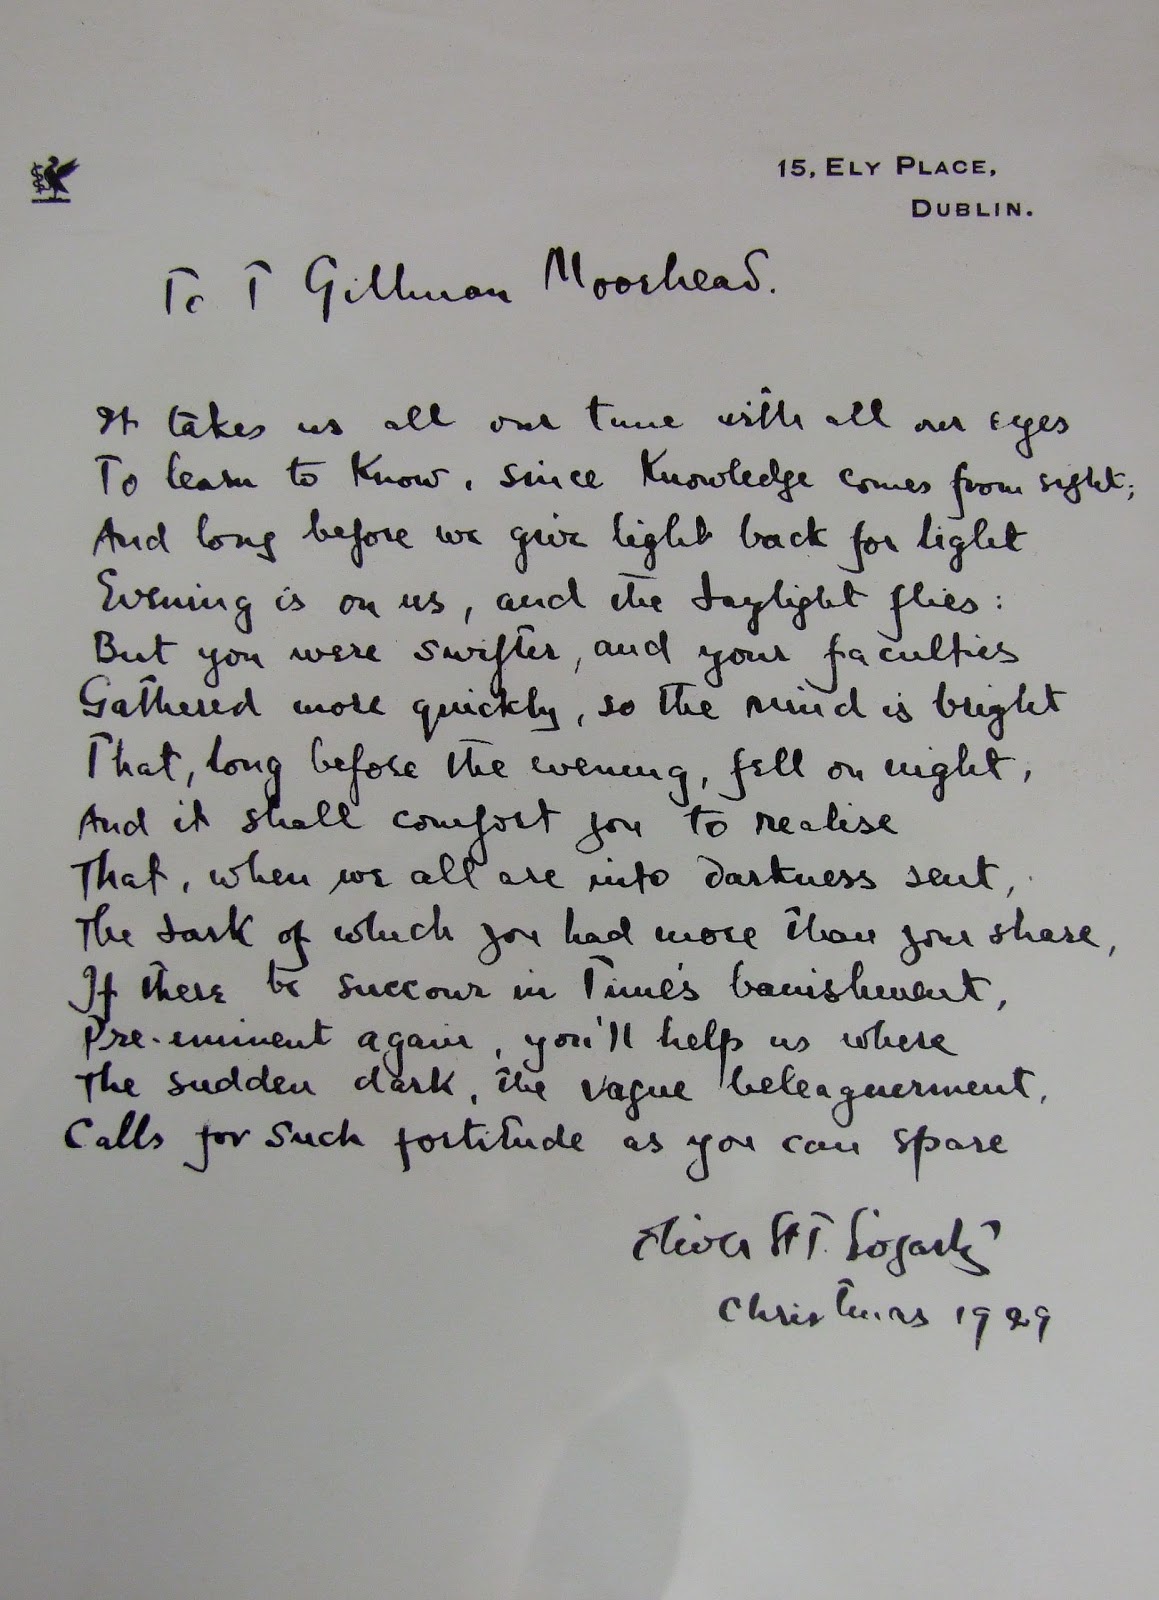 15, ELY PLACE,
DUBLIN.
To T Gillman Moorhead.
It takes us all our time with all our eyes
To learn to know, since knowledge comes from sight;
And long before we give light back for light
Evening is on us, and the daylight flies:
But you were swifter, and your faculties
Gathered more quickly, so the mind is bright
That, long before the evening, fell on night,
And it shall comfort you to realise
That, when we all are into darkness sent,
The dark of which you had more than your share,
If there be succour in Time's banishment,
Pre-eminent again, you'll help us where
The sudden dark, the vague beleaguerment,
Calls for such fortitude as you can spare
Oliver St J. Gogarty
Christmas 1929